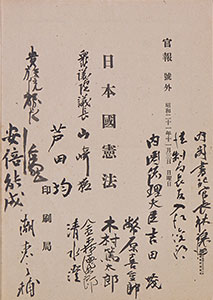 官報 號外 昭和二十一年十一月三日 日曜日
内閣書記官長 林 譲治
法制局長官 入江俊郎
内閣総理大臣 吉田 茂
幣原喜重郎
木村篤太郎
金森徳次郎
清水 澄
日本國憲法
衆議院議長 山崎 猛
芦田 均
印刷局
貴族院議長
安倍能成
潮 恵之輔